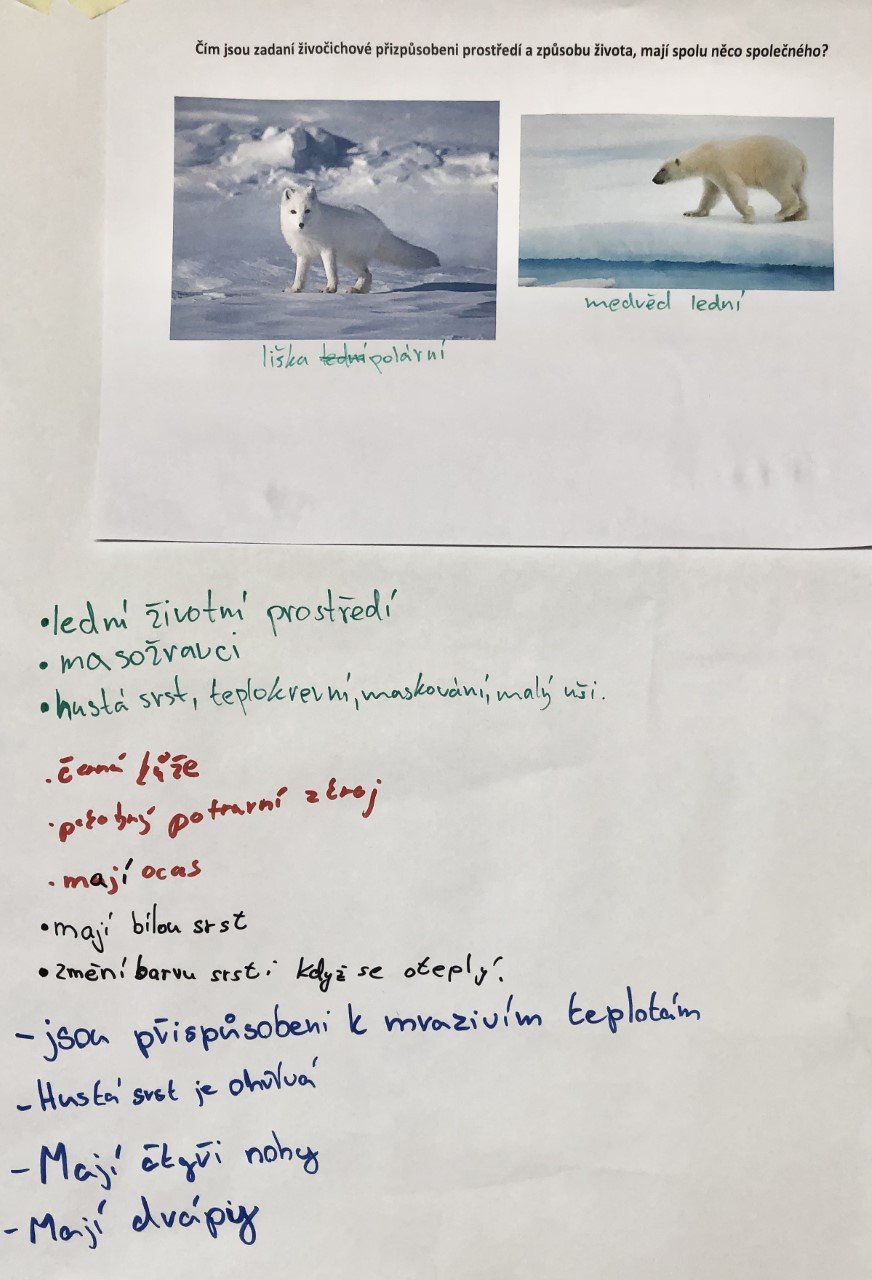 Čím jsou zadaní živočichové přizpůsobeni prostředí a způsobu života, mají spolu něco společného?
medvěd lední
liška lední polární
• lední životní prostředí
• masožravci
• hustá srst, teplokrevní, maskování, malý uši.
• černá kůže
• podobný potravní zdroj
• mají ocas
• mají bílou srst
• změní barvu srsti když se oteplý.
- jsou přispůsobeni k mrazivím teplotám
- Hustá srst je ohřívá
- Mají čtyři nohy
- Mají drápiy